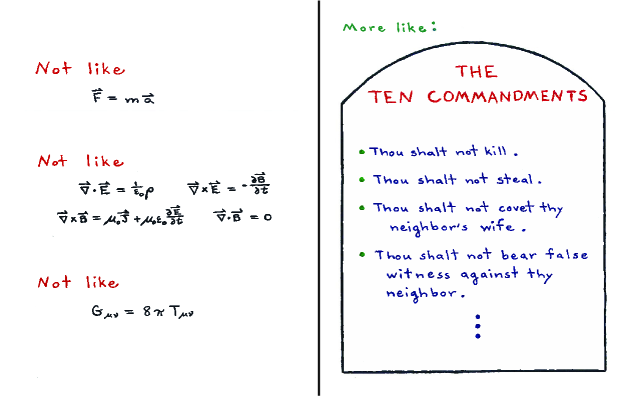 Not like
F⃗ = m a⃗
Not like
∇⃗·E⃗ = 1/ε₀ ρ   ∇⃗×E⃗ = -∂B⃗/∂t
∇⃗×B⃗ = μ₀J⃗ + μ₀ε₀ ∂E⃗/∂t   ∇⃗·B⃗ = 0
Not like
Gμν = 8π Tμν
More like:
THE
TEN COMMANDMENTS
• Thou shalt not kill.
• Thou shalt not steal.
• Thou shalt not covet thy
neighbor's wife.
• Thou shalt not bear false
witness against thy
neighbor.
⋮